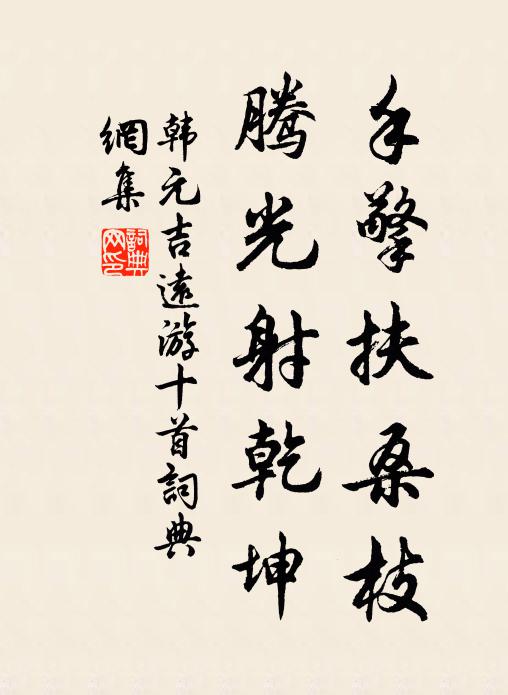 手擎扶桑枝
腾光射乾坤
韩元吉遠游十首詞典
網集
詞典網印